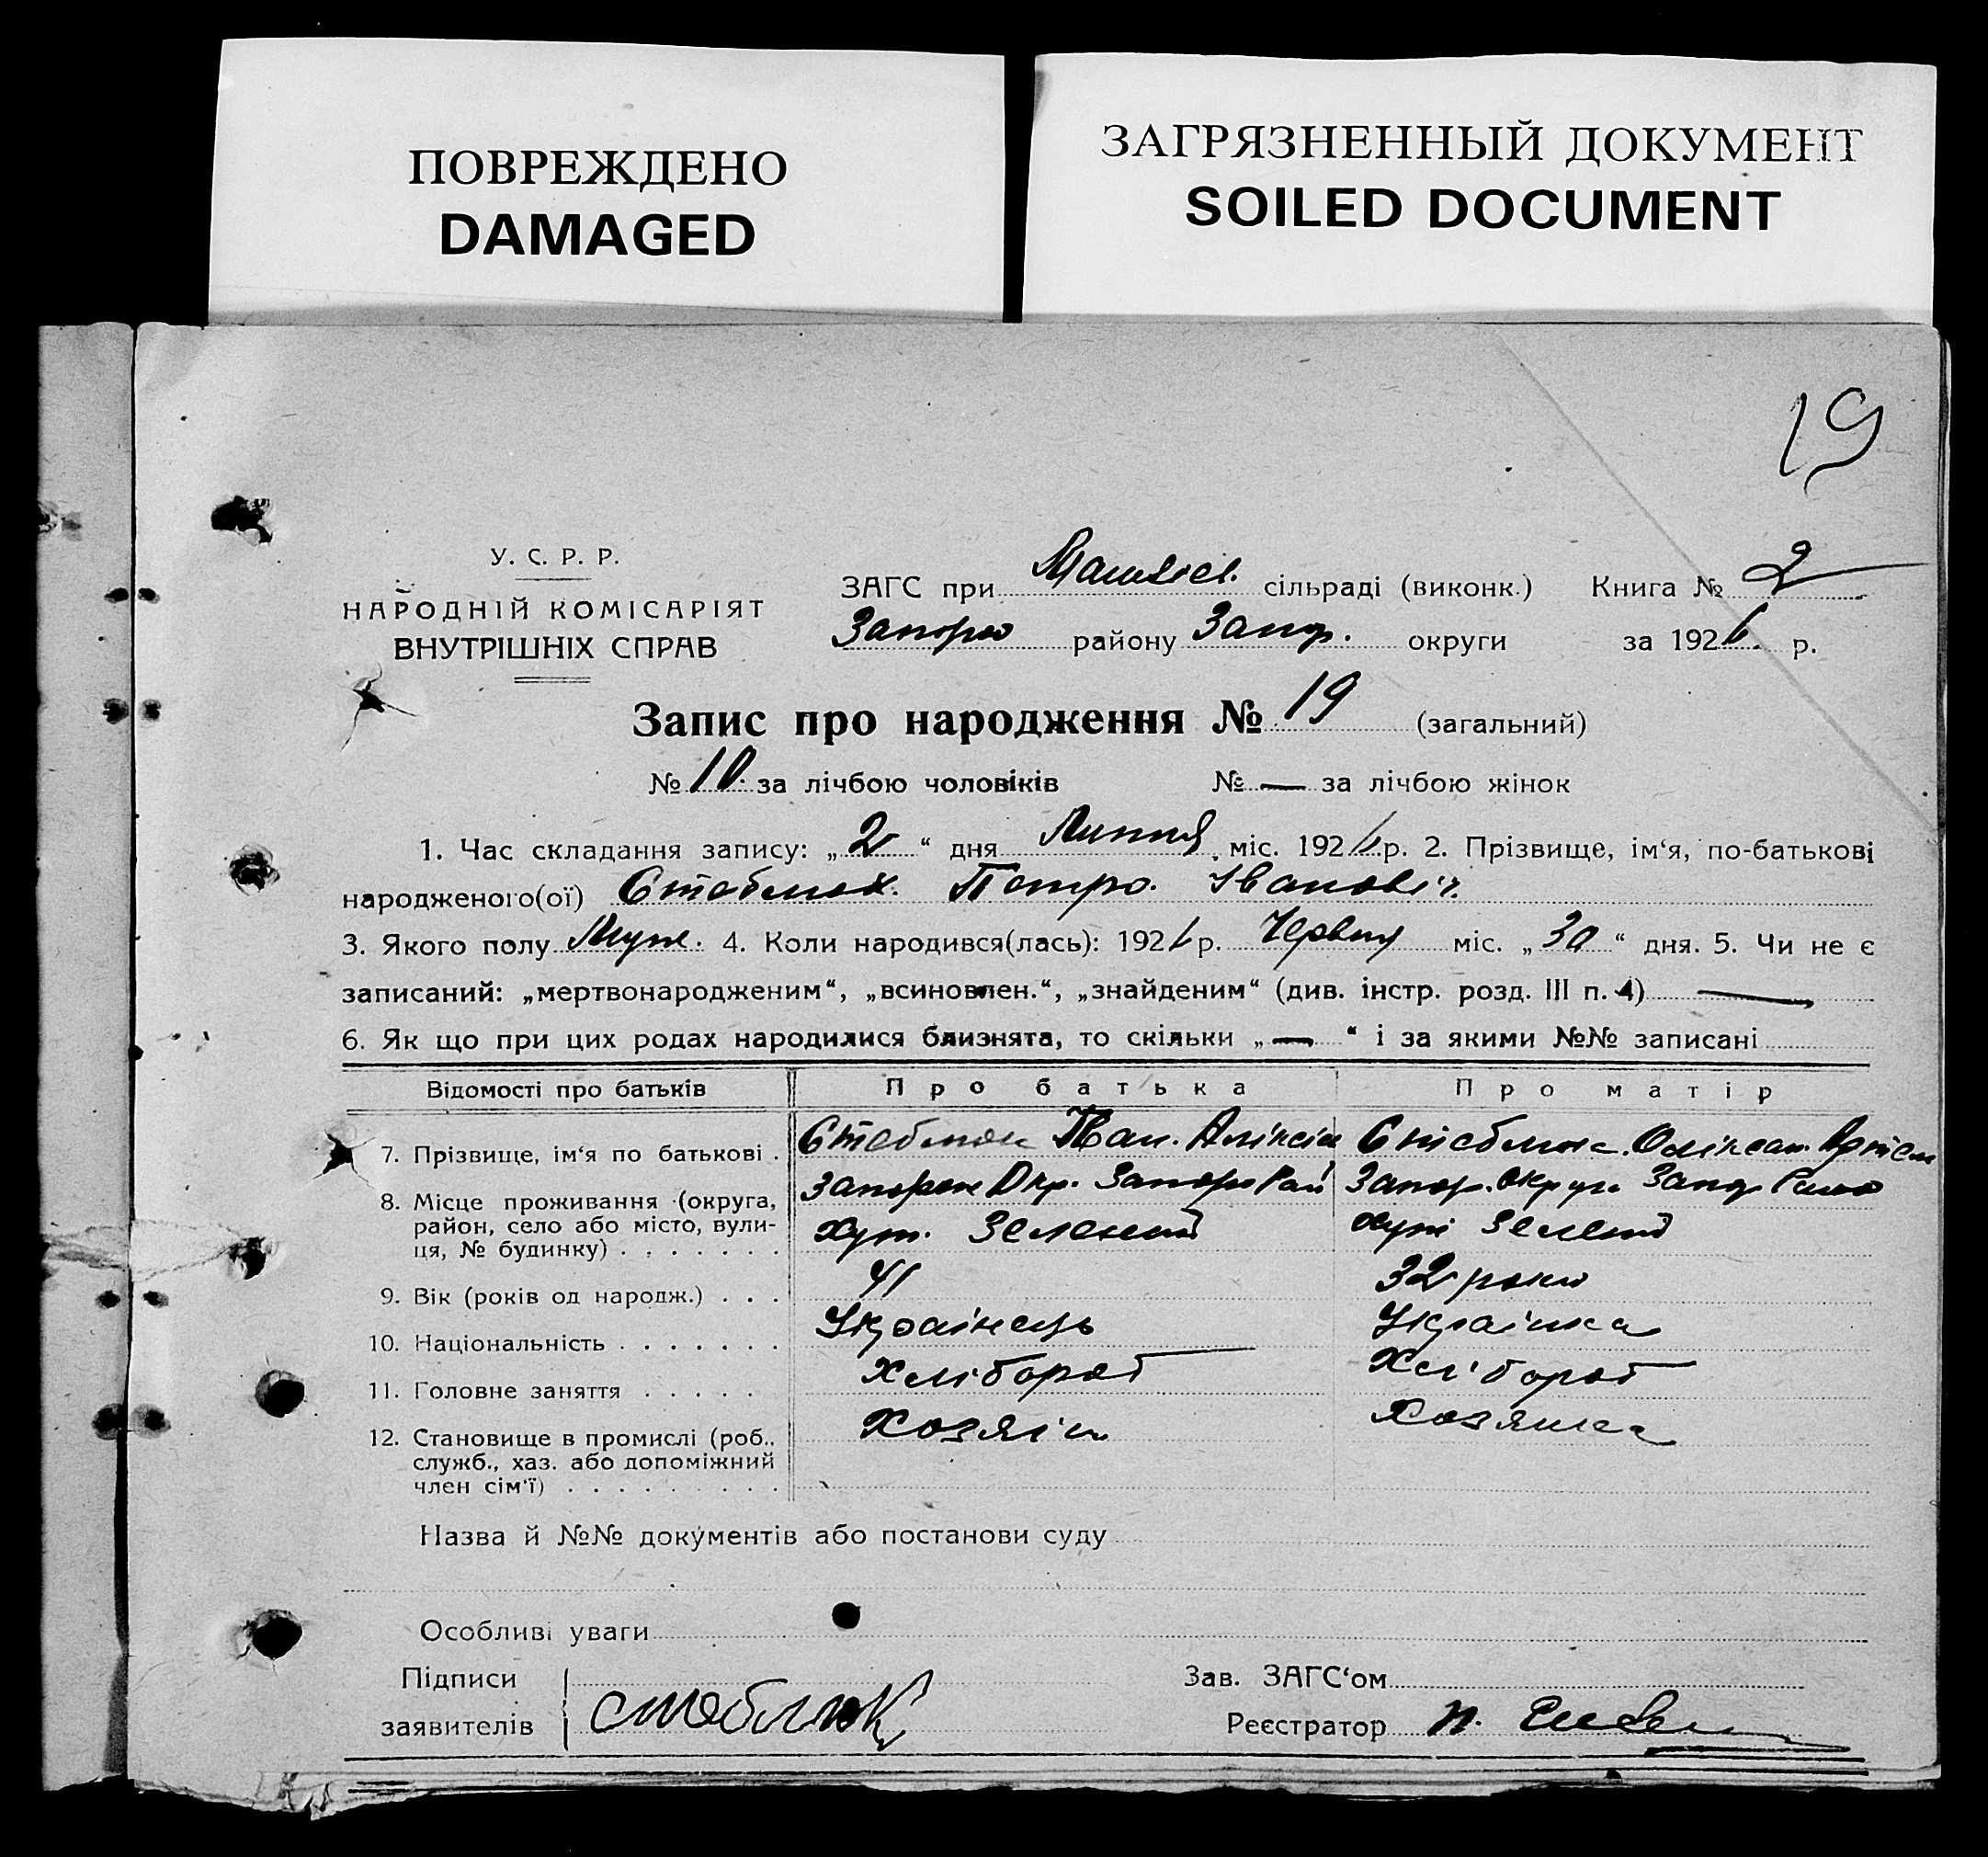 ПОВРЕЖДЕНО
DAMAGED
ЗАГРЯЗНЕННЫЙ ДОКУМЕНТ
SOILED DOCUMENT
19
У. С. Р. Р.
НАРОДНІЙ КОМІСАРІЯТ
ВНУТРІШНІХ СПРАВ
ЗАГС при сільраді (виконк.) Книга № 2
Запорож району Запор. округи за 1926 р.
Запис про народження № 19 (загальний)
№ 10 за лічбою чоловіків № — за лічбою жінок
1. Час складання запису: „2“ дня Липня міс. 1926 р. 2. Прізвище, ім‘я, по-батькові
народженого(ої) Стеблюк. Петро. Іванович.
3. Якого полу Муж. 4. Коли народився(лась): 1926 р. Червня міс. „30“ дня. 5. Чи не є
записаний: „мертвонародженим“, „всиновлен.“, „знайденим“ (див. інстр. розд. III п. 4) —
6. Як що при цих родах народилися близнята, то скільки „—“ і за якими №№ записані
Відомості про батьків Про батька Про матір
7. Прізвище, ім‘я по батькові . Стеблюк Іван. Стеблюк.
8. Місце проживання (округа, Запорож Окр. Запор. Округи
район, село або місто, вули- Хут. Зелений Хут Зелений
ця, № будинку) . . . . . . .
9. Вік (років од народж.) . . . 41 32 роки
10. Національність . . . . . . . Українець Українка
11. Головне заняття . . . . . Хлібороб Хлібороб
12. Становище в промислі (роб., Хозяін Хозяйка
служб., хаз. або допоміжний
член сім‘ї) . . . . . . . . .
Назва й №№ документів або постанови суду
Особливі уваги
Підписи Зав. ЗАГС‘ом
заявителів стоблюк Реєстратор